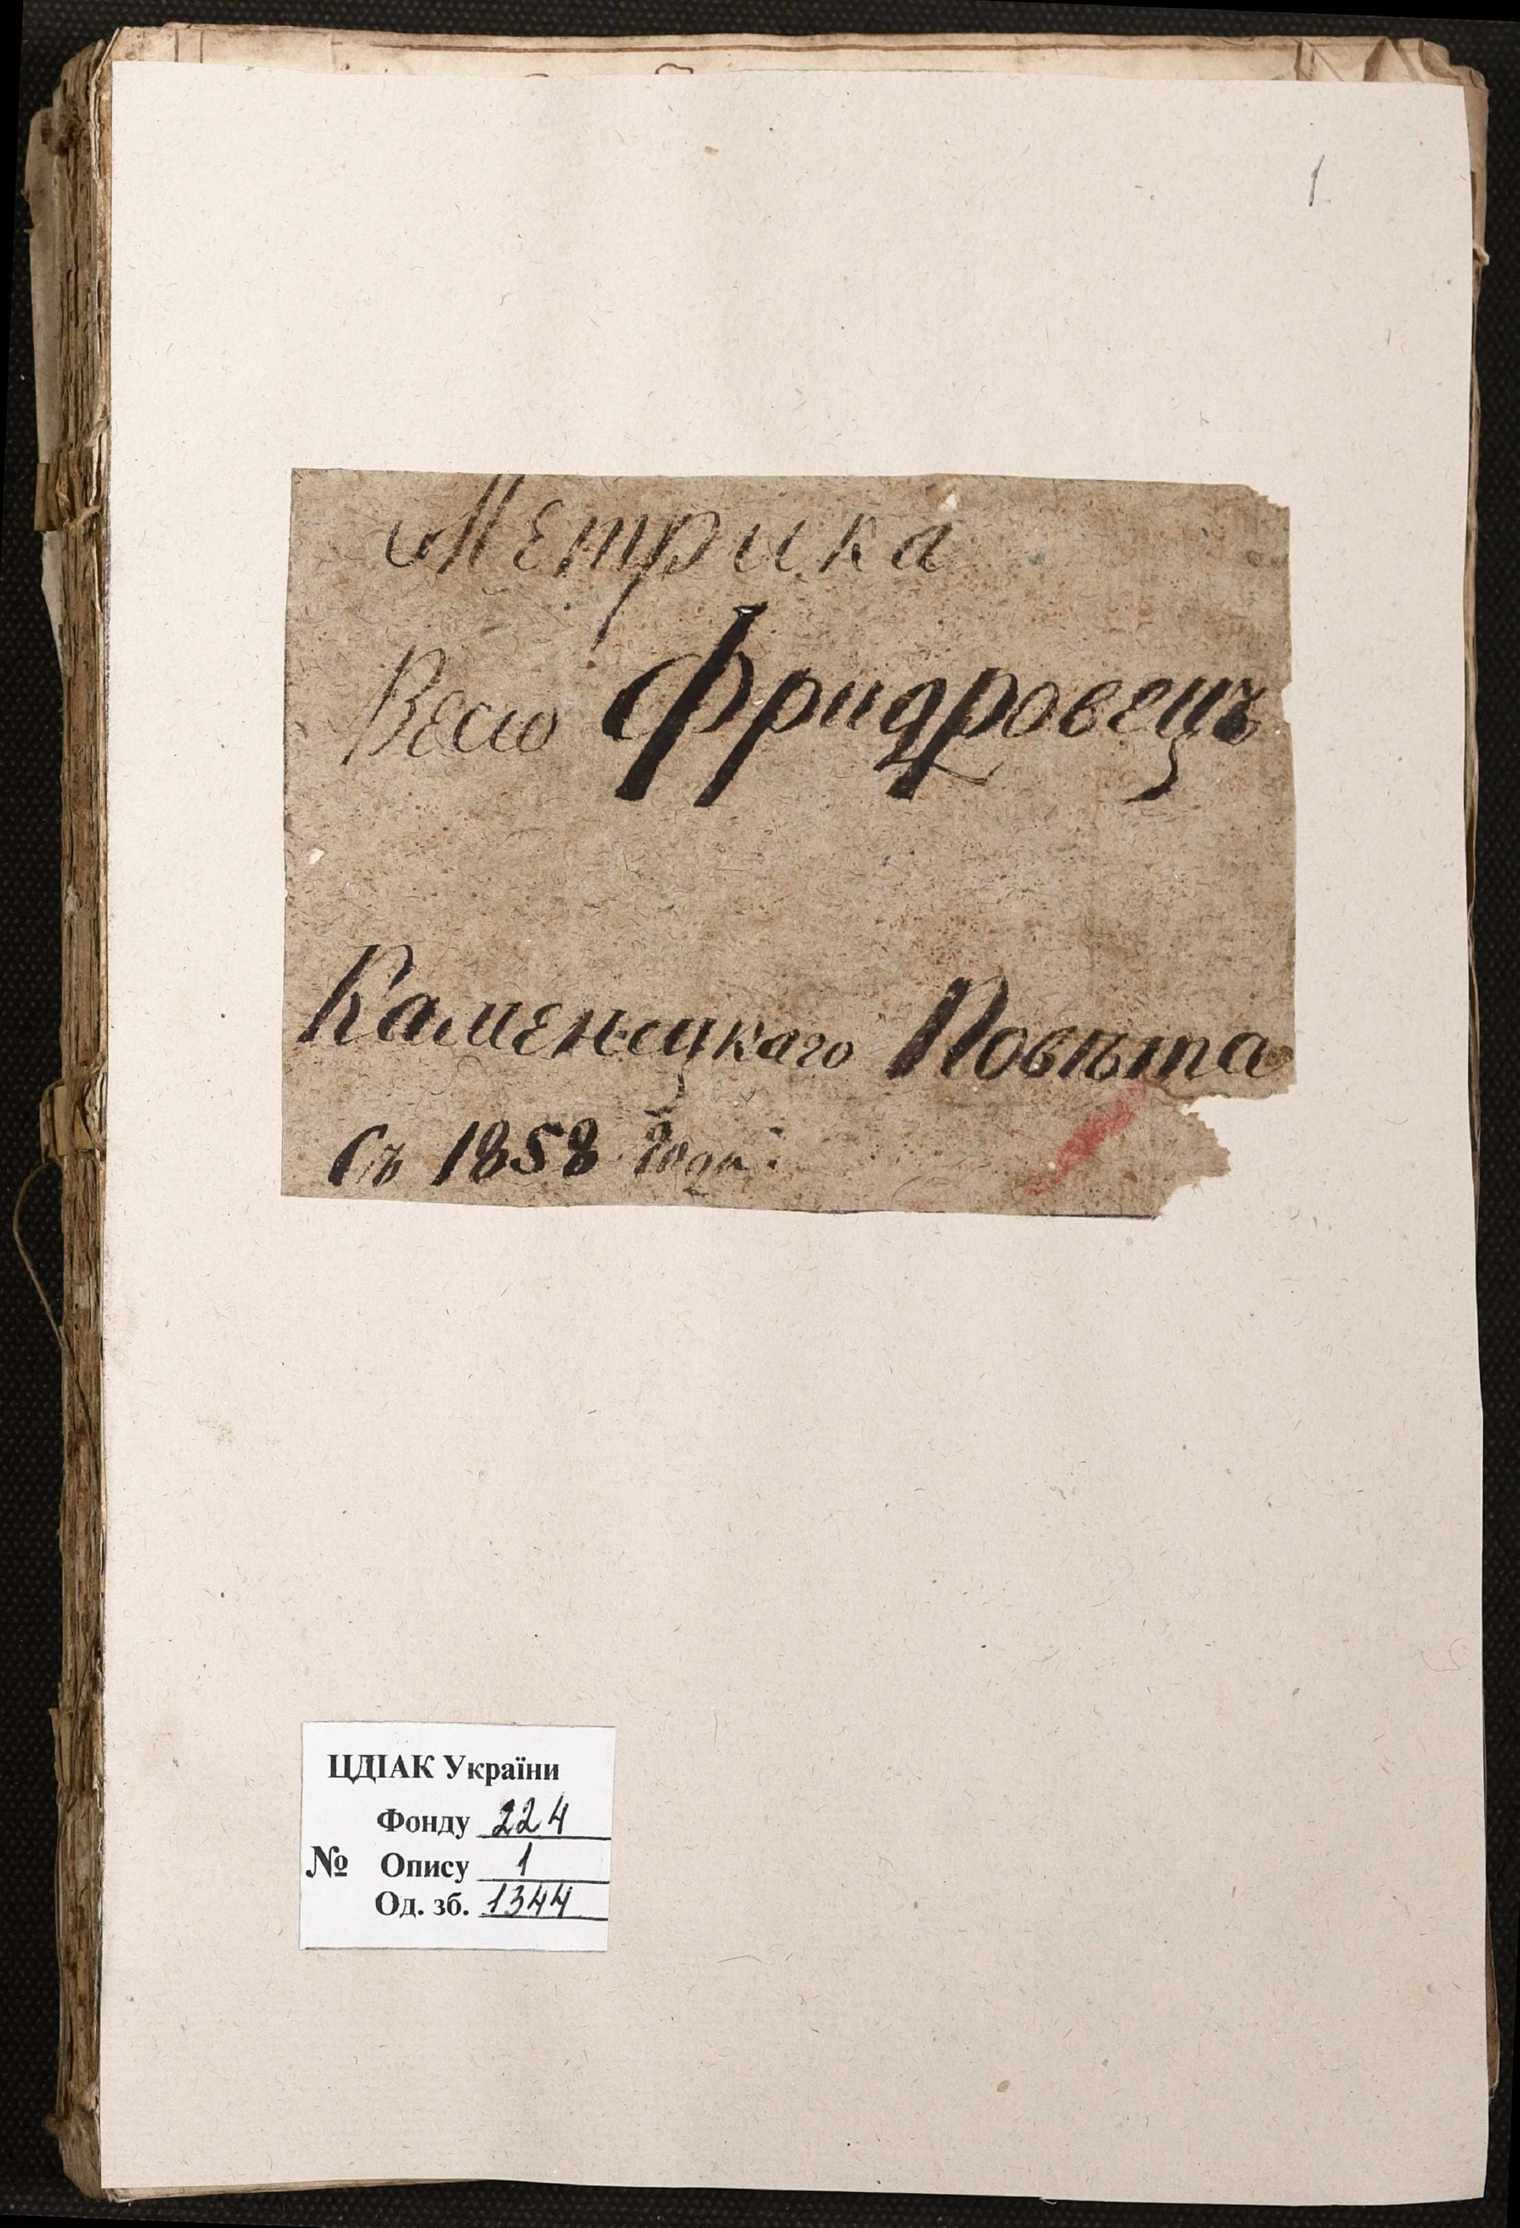 1
Метрика
Весю Фридровецъ
Каменецкаго Повѣта
Съ 1858 года
ЦДІАК України
Фонду 224
№ Опису 1
Од. зб. 1344